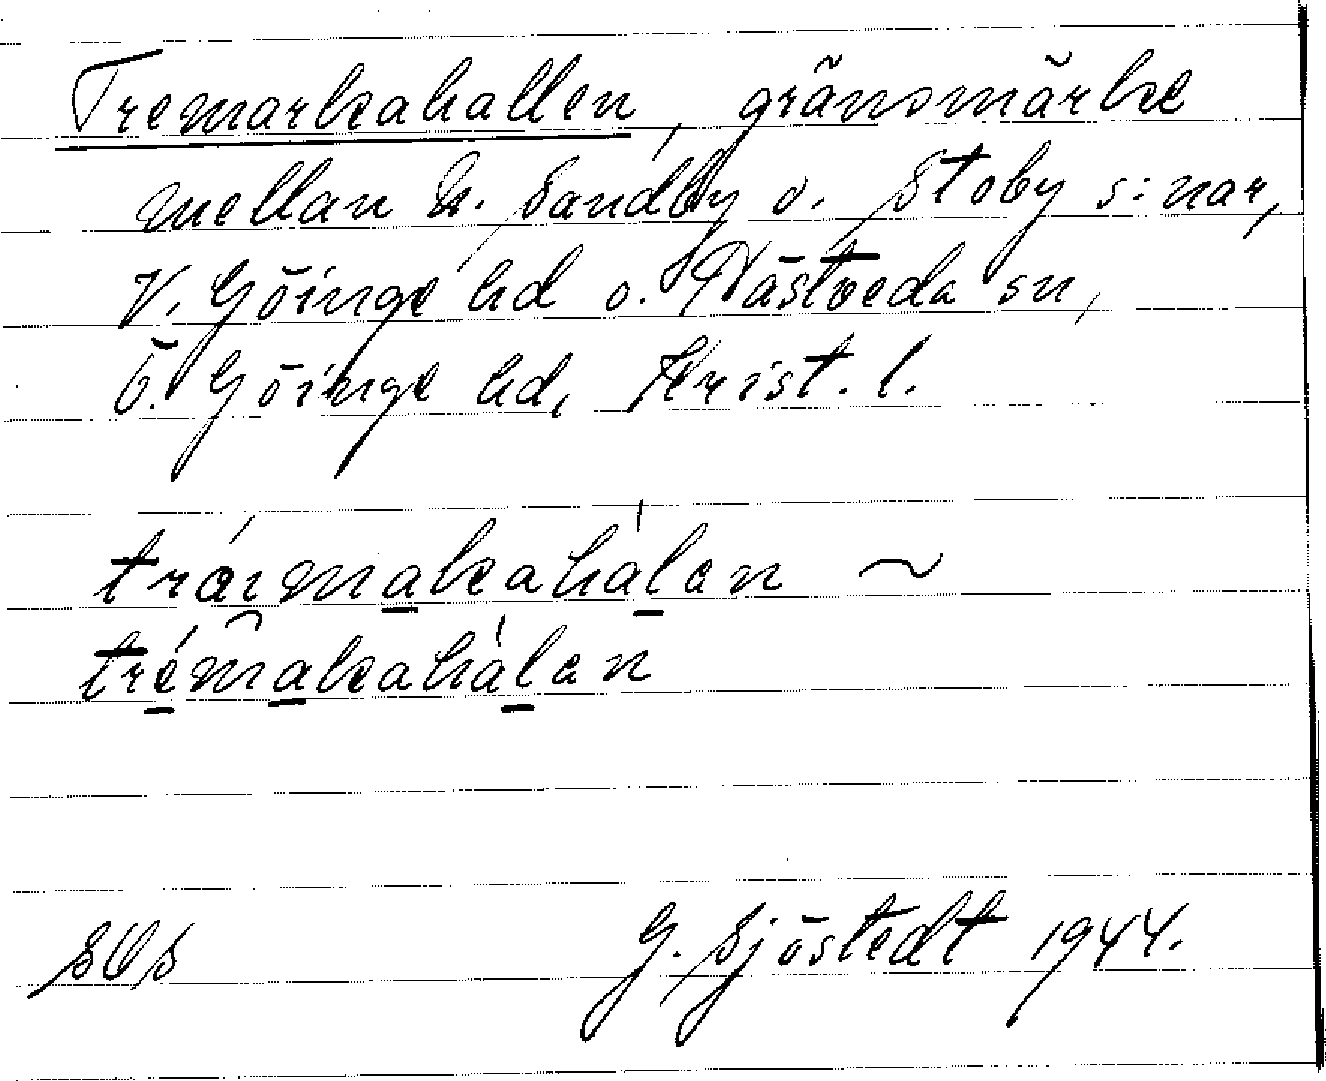 Tremarkahallen, gränsmärke
mellan N. Sandby o. Stoby s:nar,
V. Göinge hd o. Nästveda sn,
Ö. Göinge hd, Krist. l.
tráimakahálen ~
trémakahálen
G. Sjöstedt 1944.